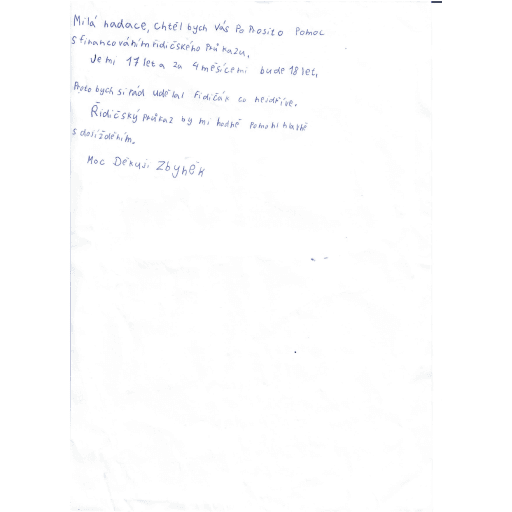 Milá nadace, chtěl bych Vás poprosit o pomoc
s financováním řidičského průkazu.
Je mi 17 let a za 4 měsíce mi bude 18 let,
Proto bych si rád udělal řidičák co nejdříve.
Řidičský průkaz by mi hodně pomohl hlavně
s dojížděním.
Moc Děkuji Zbyněk